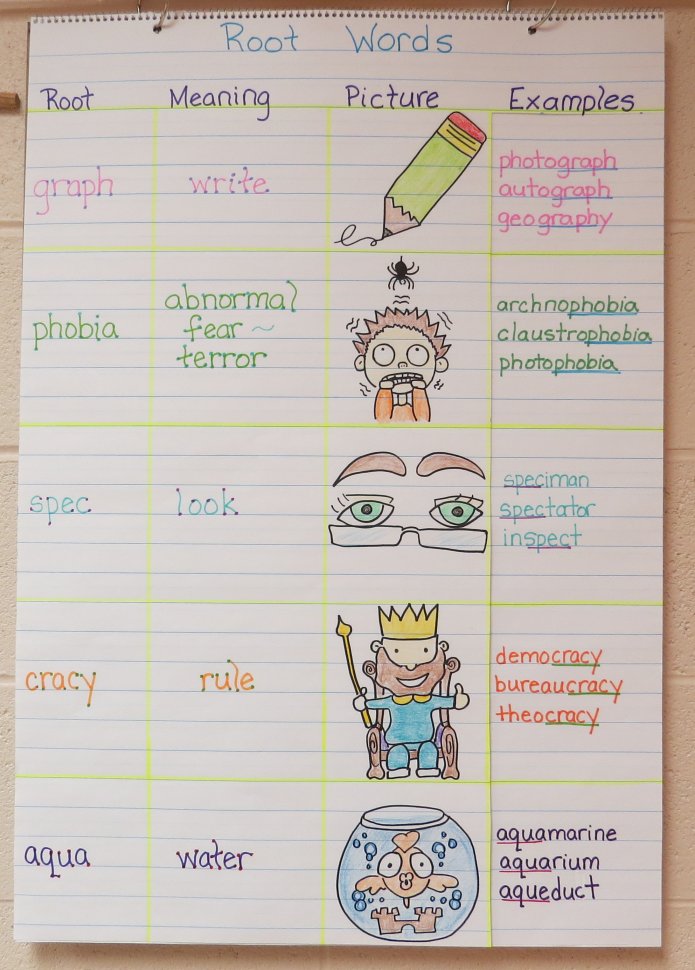 Root Words
Root Meaning Picture Examples
graph write
photograph
autograph
geography
phobia
abnormal
fear ~
terror
archnophobia
claustrophobia
photophobia
spec look
speciman
spectator
inspect
cracy rule
democracy
bureaucracy
theocracy
aqua water
aquamarine
aquarium
aqueduct